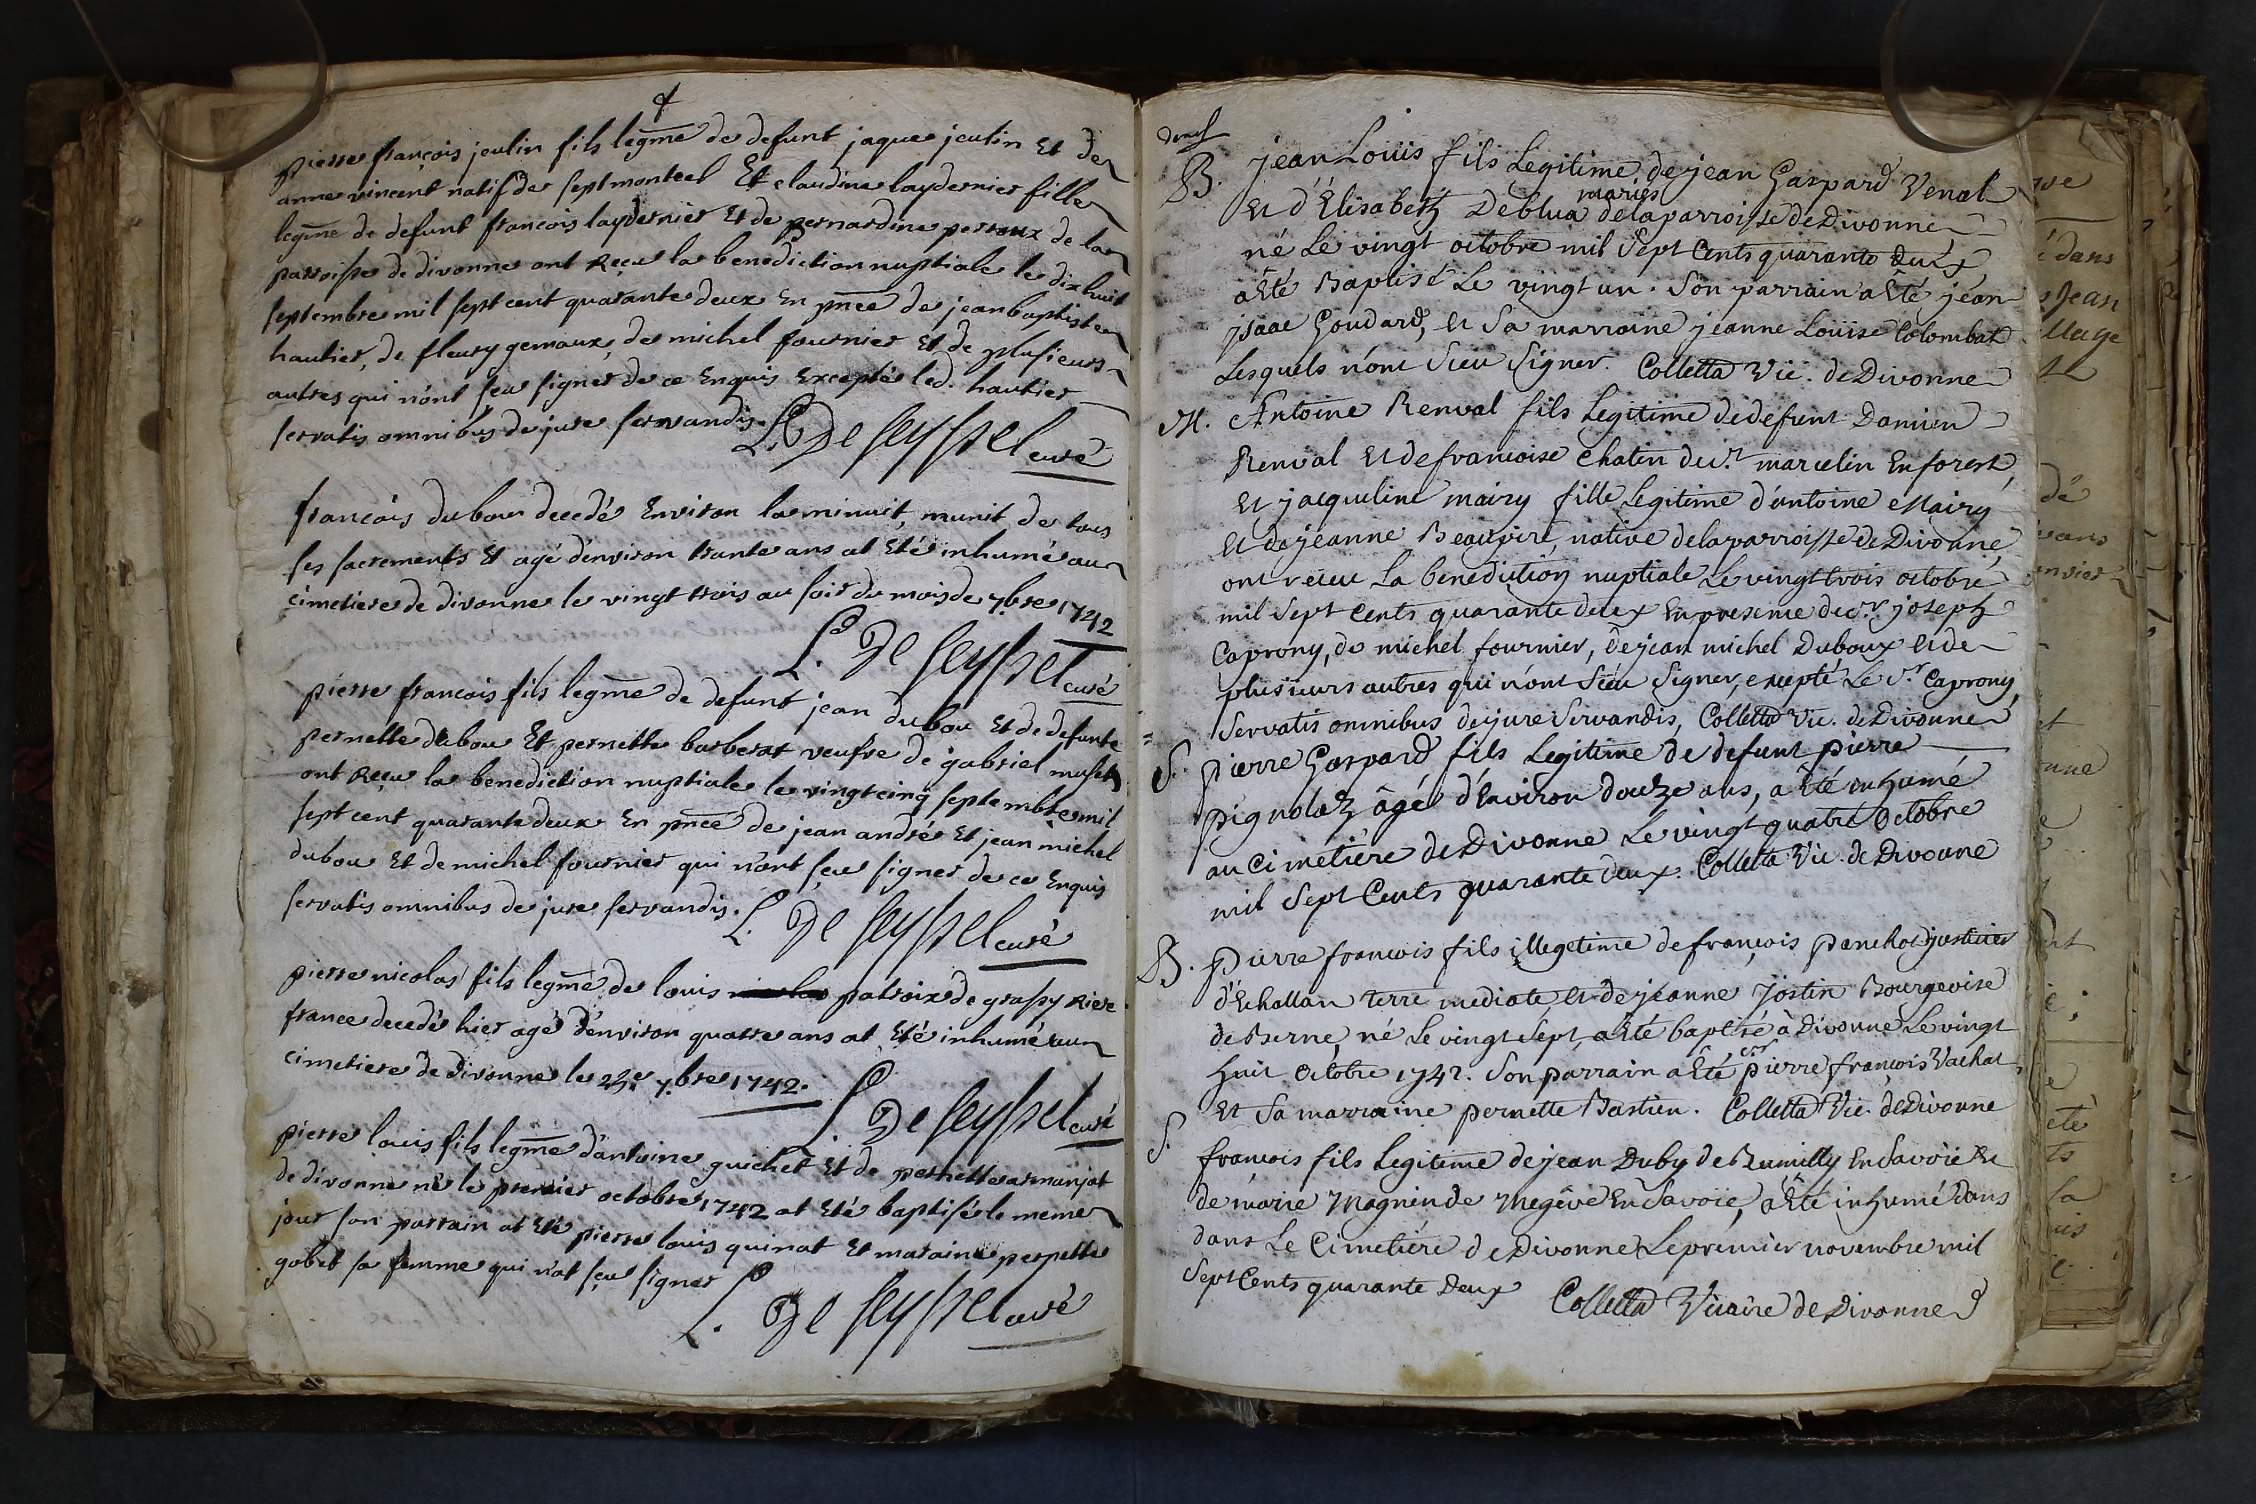 pierre françois jeulin fils legme de defunt jaque jeulin Et de
anne vincent natif de septmontcel Et claudine laydernier fille
legme de defunt francois laydernier Et de pernardine perroux de la
parroisse de divonne ont Reçu la benediction nuptiale le dix huit
septembre mil sept cent quarante deux En pnce de jean baptiste
hautier, de fleury gemaux, de michel fournier Et de plusieurs
autres qui n'ont seu signer de ce Enquis Exceptés led. hautier
servatis omnibus de jure servandis.
L. De Seyssel curé
françois dubou decedé Environ la minuit, munit de tous
ses sacrements Et agé d'environ trante ans at Eté inhumé au
cimetiere de divonne le vingt trois au soir du mois de 7bre 1742
L. De Seyssel curé
pierre francois fils legme de defunt jean dubou Et de defunte
pernette dubou Et pernette barberat veufve de gabriel
ont Reçu la benediction nuptiale le vingt cinq septembre mil
sept cent quarante deux En pnce de jean andré Et jean michel
dubou Et de michel fournier qui n'ont seu signer de ce Enquis
servatis omnibus de jure servandis.
L. De Seyssel curé
pierre nicolas fils legme de louis patroix de grassy Riere
france decedé hier agé d'environ quatre ans at Eté inhumé au
cimetiere de divonne le 7.bre 1742.
L. De Seyssel curé
pierre louis fils legme d'antoine guichet Et de pernette armanjat
de divonne né le premier octobre 1742 at Eté baptisé le meme
jour son parrain at Eté pierre louis quinat Et maraine pernette
gobet sa femme qui n'at seu signer
L. De Seyssel curé
B. jean Loüis fils Legitime de jean Gaspard Venal
mariés
Et d'Élisabeth Deblua de la parroisse de Divonne
né Le vingt octobre mil Sept Cents quarante deux
a Eté Baptisé Le vingt un. Son parrain a Eté jean
jsaac Goudard, et Sa marraine jeanne Loüise Colombat
Lesquels n'ont Sceu Signer. Colletta Vic. de Divonne
M. Antoine Renval fils Legitime de defunt Damien
Renval et de francoise Chatin de St marcelin En forest,
Et jacqueline mairy fille Legitime d'antoine Mairy
et de jeanne Beaupire, native de la parroisse de Divonne,
ont receu La benediction nuptiale Le vingt trois octobre
mil Sept Cents quarante deux En presence du Sr joseph
Caprony, de michel fournier, de jean michel Duboux et de
plusieurs autres qui n'ont Sceu Signer, excepté Le Sr Caprony,
Servatis omnibus de jure Servandis, Colletta Vic. de Divonne
S. pierre Gaspard fils Legitime de defunt pierre
pignolaz âgé d'Environ douze ans, a Eté inhumé
au Cimetiére de Divonne Le vingt quatre Octobre
mil Sept Cents quarante deux. Colletta Vic. de Divonne
B. pierre francois fils illegetime de françois panchod justicier
d'Echallan terre mediate, et de jeanne Jostin Bourgeoise
de Berne, né Le vingt Sept, a Eté baptisé à Divonne Le vingt
huit Octobre 1742. Son parrain a Eté pierre françois Vachat,
et Sa marraine pernette Bastien. Colletta Vic. de Divonne
S. francois fils Legitime de jean Duby de Rumilly En Savoie et
de marie Magnin de Megève En Savoie, a Eté inhumé dans
dans Le Cimetiére de Divonne Le premier novembre mil
Sept Cents quarante Deux Colletta Vicaire de Divonne
dans
Jean
llage